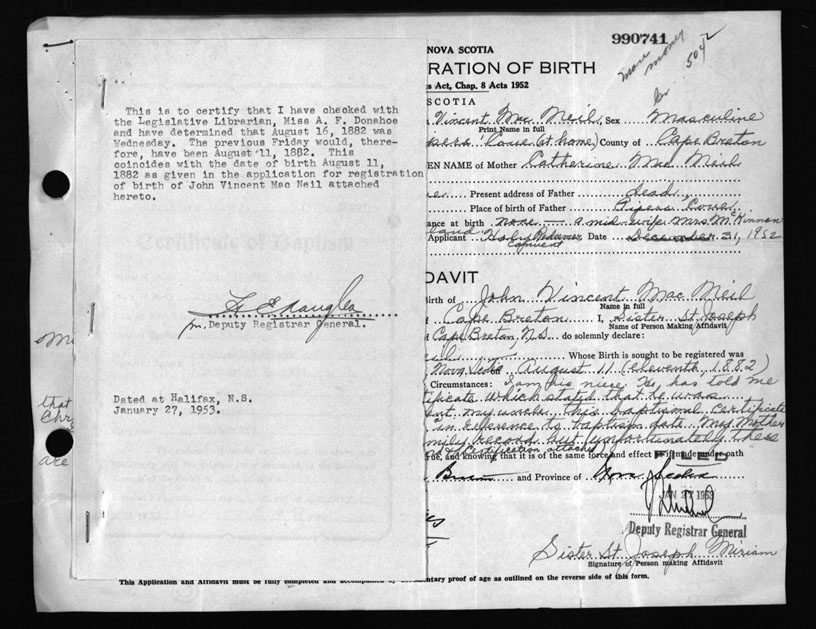 This is to certify that I have checked with
the Legislative Librarian, Miss A. F. Donahoe
and have determined that August 16, 1882 was
Wednesday. The previous Friday would, there-
fore, have been August 11, 1882. This
coincides with the date of birth August 11,
1882 as given in the application for registration
of birth of John Vincent Mac Neil attached
hereto.
Deputy Registrar General.
Dated at Halifax, N.S.
January 27, 1953.
that
are
990741
more money
504
NOVA SCOTIA
RATION OF BIRTH
s Act, Chap. 8 Acts 1952
SCOTIA
Vincent Mac Neil, Sex Masculine
Print Name in full
Cove (at home) County of Cape Breton
EN NAME of Mother Catherine Mac Neil
Present address of Father dead
Place of birth of Father Pipers Cove
ance at birth none - a mid-wife Mrs. McKinnon
Applicant Holy Redeemer Date December 31, 1952
Convent
DAVIT
Birth of John Vincent Mac Neil
Name in full
Cape Breton I, Sister St. Joseph
Name of Person Making Affidavit
Cape Breton, N.S. do solemnly declare:
Whose Birth is sought to be registered was
Nova Scotia August 11 (eleventh 1882)
Circumstances: I am his niece. He has told me
tificate which stated that he was
ent my uncle this baptismal certificate
in reference to baptism date. My Mother
mily record but unfortunately these
ue, and knowing that it is of the same force and effect if made under oath
FILED
and Province of Nova Scotia
JAN 27 1953
Deputy Registrar General
Sister St. Joseph Miriam
Signature of Person making Affidavit
This Application and Affidavit must be fully completed and accompanied by mentary proof of age as outlined on the reverse side of this form.